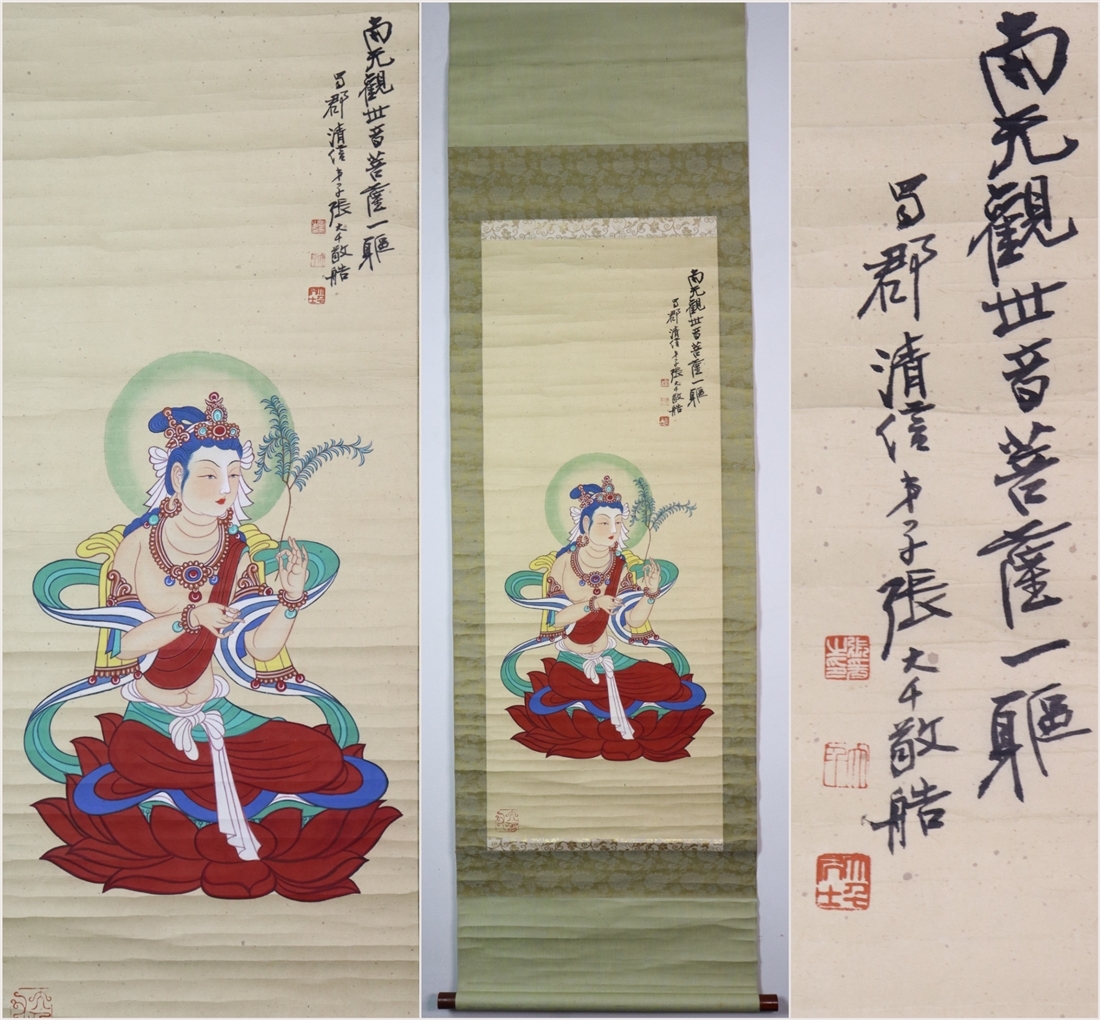 南无觀世音菩薩一軀
蜀郡清信弟子張大千敬艁
南无觀世音菩薩一軀
蜀郡清信弟子張大千敬艁
南无觀世音菩薩一軀
蜀郡清信弟子張大千敬艁
張爰之印
大千